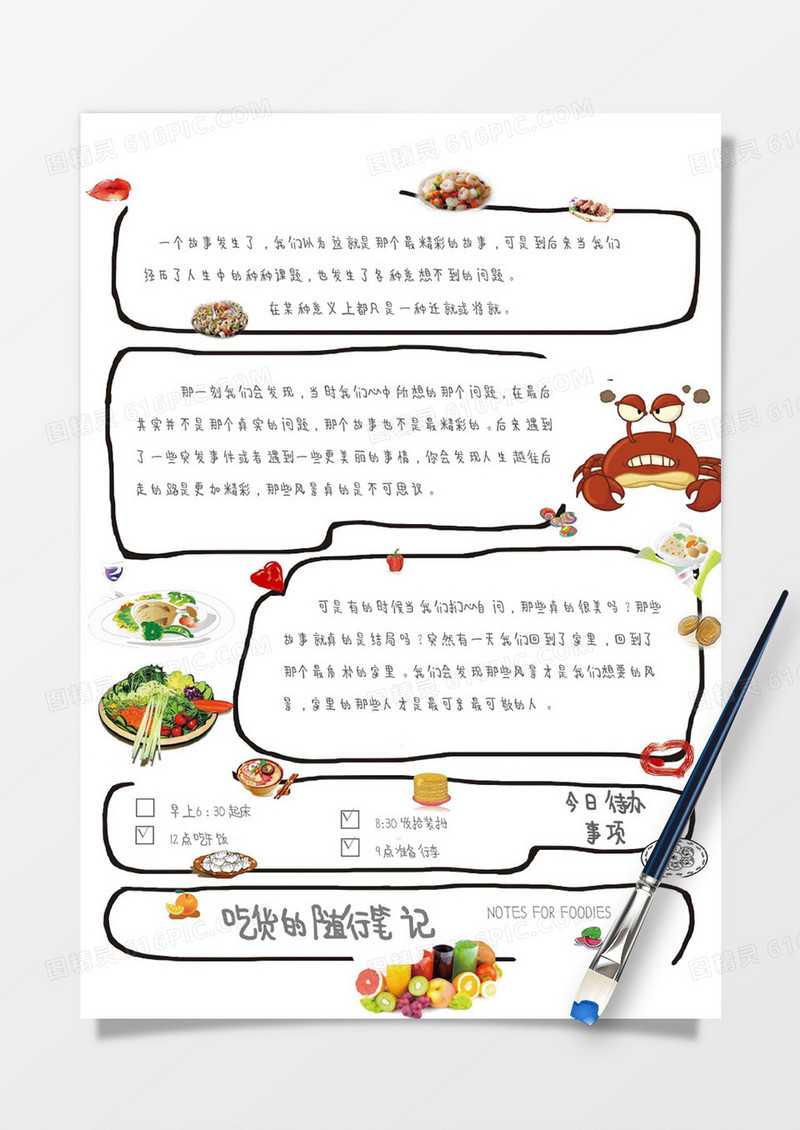 一个故事发生了，我们以为这就是那个最精彩的故事，可是到后来当我们
经历了人生中的种种课题，也发生了各种意想不到的问题。
在某种意义上都只是一种迁就或将就。
那一刻我们会发现，当时我们心中所想的那个问题，在最后
其实并不是那个真实的问题，那个故事也不是最精彩的。后来遇到
了一些突发事件或者遇到一些更美丽的事情，你会发现人生越往后
走的路是更加精彩，那些风景真的是不可思议。
可是有的时候当我们扪心自问，那些真的很美吗？那些
故事就真的是结局吗？突然有一天我们回到了家里，回到了
那个最质朴的家里。我们会发现那些风景才是我们想要的风
景，家里的那些人才是最可亲最可敬的人。
早上6：30起床
8:30收拾装扮
今日待办
事项
12点吃午饭
9点准备行李
吃货的随行笔记
NOTES FOR FOODIES
图精灵 616PIC.COM